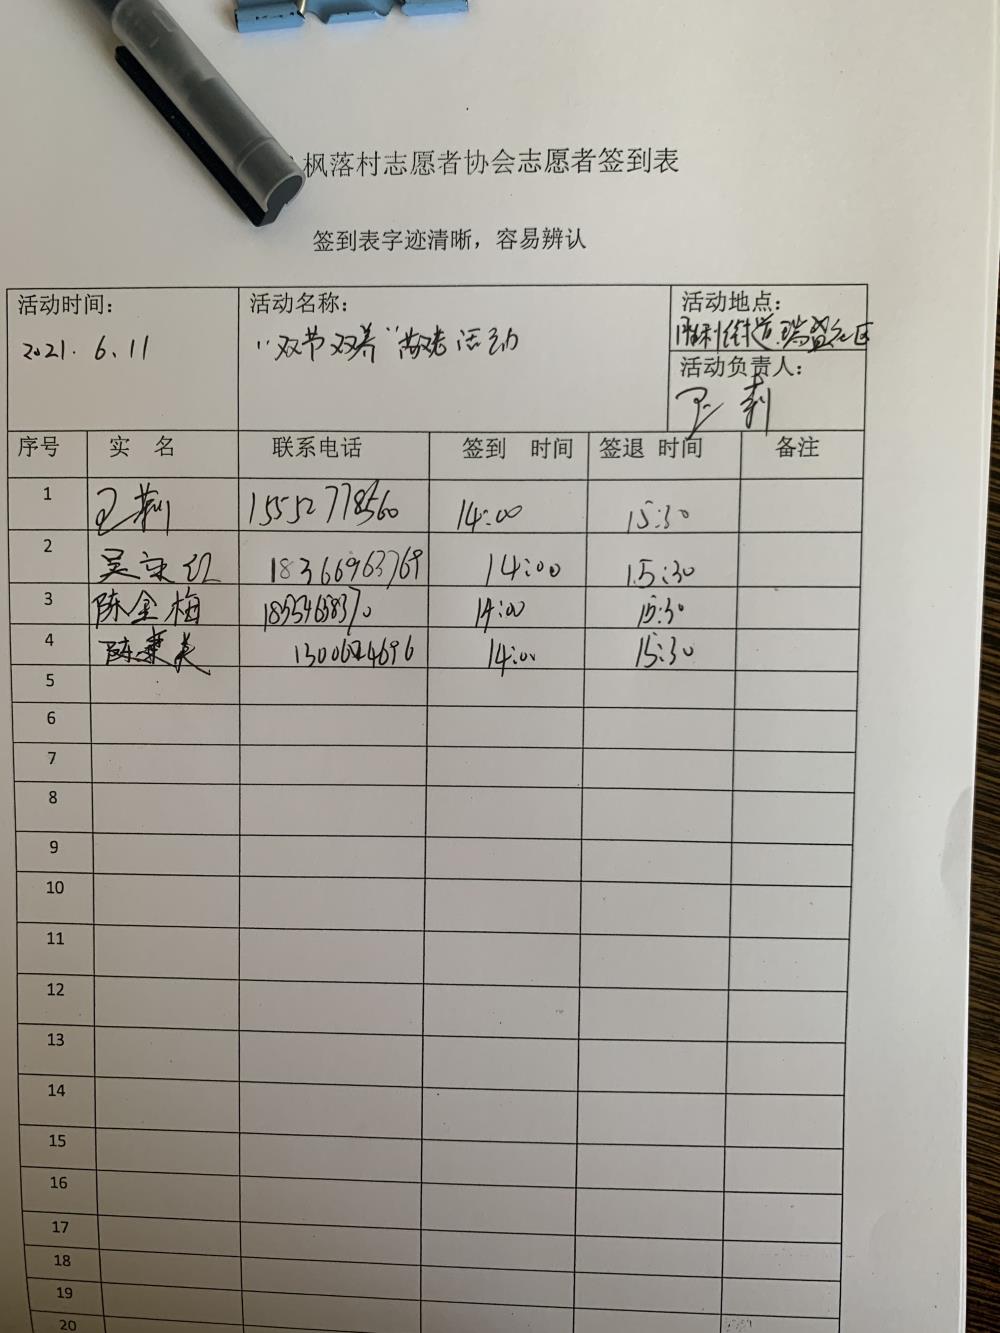 枫落村志愿者协会志愿者签到表
签到表字迹清晰，容易辨认
活动时间： 活动名称： 活动地点：
2021.6.11 “双节双养”敬老活动 胜利街道瑞盈社区
活动负责人：
王莉
序号 实 名 联系电话 签到 时间 签退 时间 备注
1 王莉 15552778560 14:00 15:30
2 吴 红 18366963769 14:00 15:30
3 陈金梅 14:00 15:30
4 陈 14:00 15:30
5
6
7
8
9
10
11
12
13
14
15
16
17
18
19
20